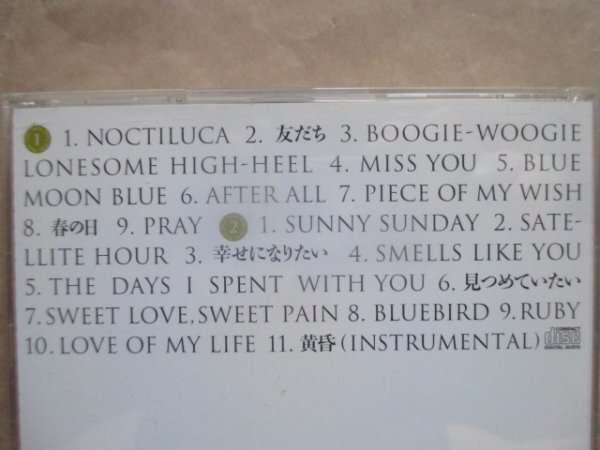 1 1. NOCTILUCA 2. 友だち 3. BOOGIE-WOOGIE
LONESOME HIGH-HEEL 4. MISS YOU 5. BLUE
MOON BLUE 6. AFTER ALL 7. PIECE OF MY WISH
8. 春の日 9. PRAY 2 1. SUNNY SUNDAY 2. SATE-
LLITE HOUR 3. 幸せになりたい 4. SMELLS LIKE YOU
5. THE DAYS I SPENT WITH YOU 6. 見つめていたい
7. SWEET LOVE, SWEET PAIN 8. BLUEBIRD 9. RUBY
10. LOVE OF MY LIFE 11. 黄昏 (INSTRUMENTAL) COMPACT disc DIGITAL AUDIO